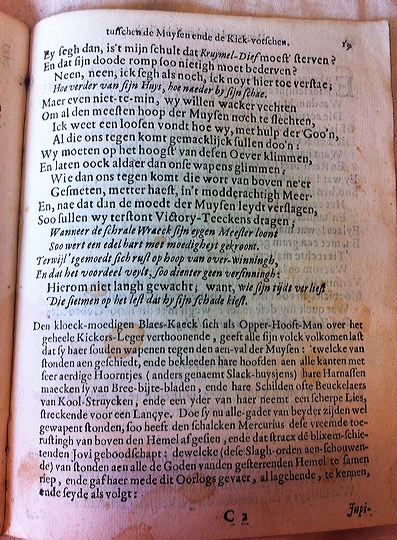 tusschen de Muysen ende de Kick-vorschen. 19
Ey segh dan, is't mijn schult dat Kruymel-Dief moest sterven?
En dat sijn doode romp soo nietigh moet bederven?
Neen, neen, ick segh als noch, ick noyt hier toe verstae;
Hoe verder van sijn Huys, hoe naeder by sijn schae.
Maer even niet-te-min, wy willen wacker vechten
Om al den meesten hoop der Muysen noch te slechten,
Ick weet een loosen vondt hoe wy, met hulp der Goo'n,
Al die ons tegen komt gemacklijck sullen doo'n:
Wy moeten op het hoogst van desen Oever klimmen,
En laten oock aldaer dan onse wapens glimmen;
Wie dan ons tegen komt die wort van boven ne'er
Gesmeten, metter haest, in't modderachtigh Meer.
En, nae dat dan de moedt der Muysen leydt verslagen,
Soo sullen wy terstont Victory-Teeckens dragen;
Wanneer de schrale Wraeck sijn eygen Meester loont
Soo wert een edel hart met moedigheyt gekroont.
Terwijl 'tgemoedt sich rust op hoop van over-winningh,
En dat het voordeel veylt, soo dienter geen versinningh:
Hierom niet langh gewacht; want, wie sijn tijdt verliest
Die sietmen op het lest dat hy sijn schade kiest.
Den kloeck-moedigen Blaes-Kaeck sich als Opper-Hooft-Man over het
geheele Kickers-Leger verthoonende, geeft alle sijn volck volkomen last
dat sy haer souden wapenen tegen den aen-val der Muysen: 'twelcke van
stonden aen geschiedt, ende bekleeden hare hoofden aen alle kanten met
seer aerdige Hoorntjes (anders genaemt Slack-huysjens) hare Harnassen
maecken sy van Bree-bijte-bladen, ende hare Schilden ofte Beuckelaers
van Kool-Struycken, ende een yder van haer neemt een scherpe Lies,
streckende voor een Lançye. Doe sy nu alle-gader van beyder zijden wel
gewapent stonden, soo heeft den schalcken Mercurius dese vreemde toe-
rustingh van boven den Hemel afgesien, ende dat stracx dē blixem-schie-
tenden Jovi geboodschapt: dewelcke (dese Slagh-orden aen-schouwen-
de) van stonden aen alle de Goden vanden gesterrenden Hemel te samen
riep, ende gaf haer mede dit Oorlogs gevaer, al lagchende, te kennen,
ende seyde als volgt:
C 2 Jupi-